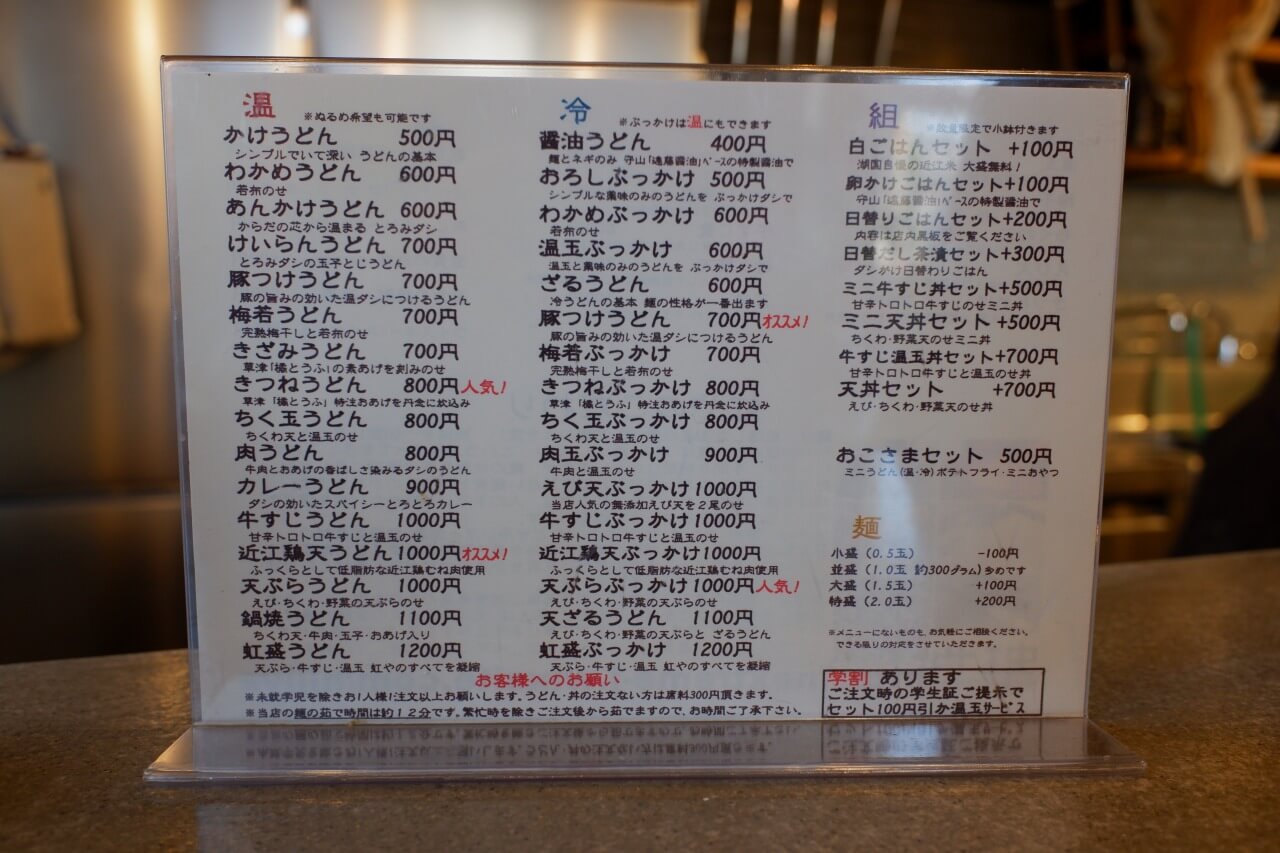 温
※ぬるめ希望も可能です
かけうどん 500円
シンプルでいて深い うどんの基本
わかめうどん 600円
若布のせ
あんかけうどん 600円
からだの芯から温まる とろみダシ
けいらんうどん 700円
とろみダシの玉子とじうどん
豚つけうどん 700円
豚の旨みの効いた温ダシにつけるうどん
梅若うどん 700円
完熟梅干しと若布のせ
きざみうどん 700円
草津「橘とうふ」の素あげを刻みのせ
きつねうどん 800円 人気!
草津 「橘とうふ」 特注おあげを丹念に炊込み
ちく玉うどん 800円
ちくわ天と温玉のせ
肉うどん 800円
牛肉とおあげの香ばしさ染みるダシのうどん
カレーうどん 900円
ダシの効いたスパイシーとろとろカレー
牛すじうどん 1000円
甘辛トロトロ牛すじと温玉のせ
近江鶏天うどん 1000円 オススメ!
ふっくらとして低脂肪な近江鶏むね肉使用
天ぷらうどん 1000円
えび・ちくわ・野菜の天ぷらのせ
鍋焼うどん 1100円
ちくわ天・牛肉・玉子・おあげ入り
虹盛うどん 1200円
天ぷら・牛すじ・温玉 虹やのすべてを凝縮
冷
※ぶっかけは温にもできます
醤油うどん 400円
麺とネギのみ 守山「遠藤醤油」ベースの特製醤油で
おろしぶっかけ 500円
シンプルな薬味のみのうどんを ぶっかけダシで
わかめぶっかけ 600円
若布のせ
温玉ぶっかけ 600円
温玉と薬味のみのうどんを ぶっかけダシで
ざるうどん 600円
冷うどんの基本 麺の性格が一番出ます
豚つけうどん 700円 オススメ!
豚の旨みの効いた温ダシにつけるうどん
梅若ぶっかけ 700円
完熟梅干しと若布のせ
きつねぶっかけ 800円
草津 「橘とうふ」 特注おあげを丹念に炊込み
ちく玉ぶっかけ 800円
ちくわ天と温玉のせ
肉玉ぶっかけ 900円
牛肉と温玉のせ
えび天ぶっかけ 1000円
当店人気の無添加えび天を2尾のせ
牛すじぶっかけ 1000円
甘辛トロトロ牛すじと温玉のせ
近江鶏天ぶっかけ 1000円
ふっくらとして低脂肪な近江鶏むね肉使用
天ぷらぶっかけ 1000円 人気!
えび・ちくわ・野菜の天ぷらのせ
天ざるうどん 1100円
えび・ちくわ・野菜の天ぷらと ざるうどん
虹盛ぶっかけ 1200円
天ぷら・牛すじ・温玉 虹やのすべてを凝縮
組
※数量限定で小鉢付きます
白ごはんセット +100円
湖国自慢の近江米 大盛無料!
卵かけごはんセット +100円
守山「遠藤醤油」ベースの特製醤油で
日替りごはんセット +200円
内容は店内黒板をご覧ください
日替だし茶漬セット +300円
ダシがけ日替わりごはん
ミニ牛すじ丼セット +500円
甘辛トロトロ牛すじのせミニ丼
ミニ天丼セット +500円
ちくわ・野菜天のせミニ丼
牛すじ温玉丼セット +700円
甘辛トロトロ牛すじと温玉のせ丼
天丼セット +700円
えび・ちくわ・野菜天のせ丼
おこさまセット 500円
ミニうどん(温・冷) ポテトフライ・ミニおやつ
麺
小盛 (0.5玉) -100円
並盛 (1.0玉 約300グラム) 多めです
大盛 (1.5玉) +100円
特盛 (2.0玉) +200円
※メニューにないものも、お気軽にご相談ください。
できる限りの対応をさせていただきます。
学割 あります
ご注文時の学生証ご提示で
セット100円引か温玉サービス
お客様へのお願い
※未就学児を除きお1人様1注文以上お願いします。うどん・丼の注文ない方は席料300円頂きます。
※当店の麺の茹で時間は約12分です。繁忙時を除きご注文後から茹でますので、お時間ご了承下さい。